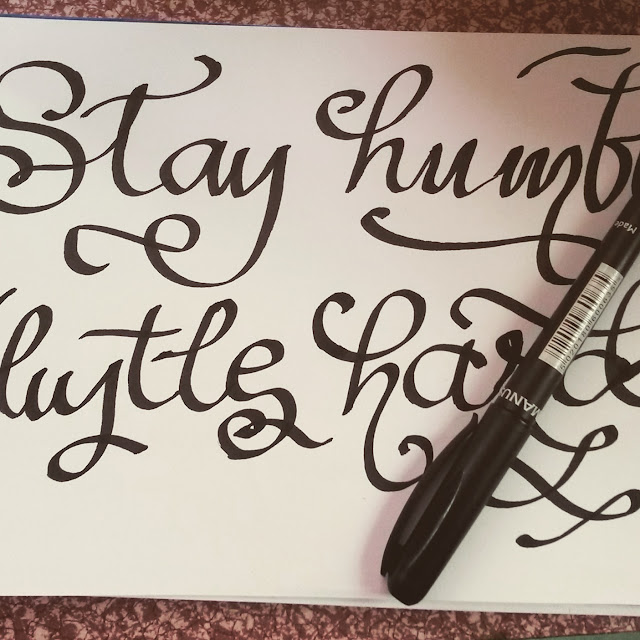 Stay humb
Hustle hard
MANU
Made